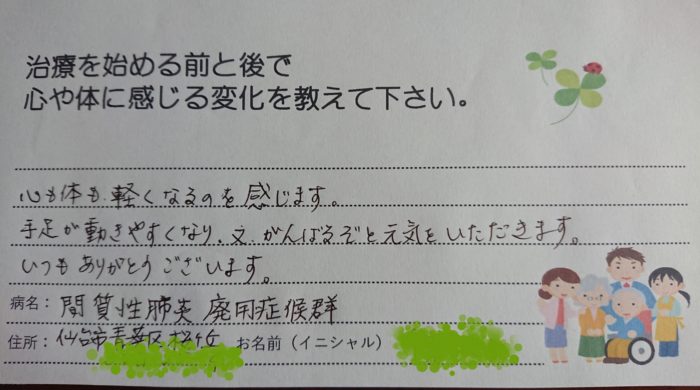 治療を始める前と後で
心や体に感じる変化を教えて下さい。
心も体も軽くなるのを感じます。
手足が動きやすくなり、又、がんばるぞと元気をいただきます。
いつもありがとうございます。
病名: 間質性肺炎 廃用症候群
住所: 仙台市青葉区 お名前(イニシャル)